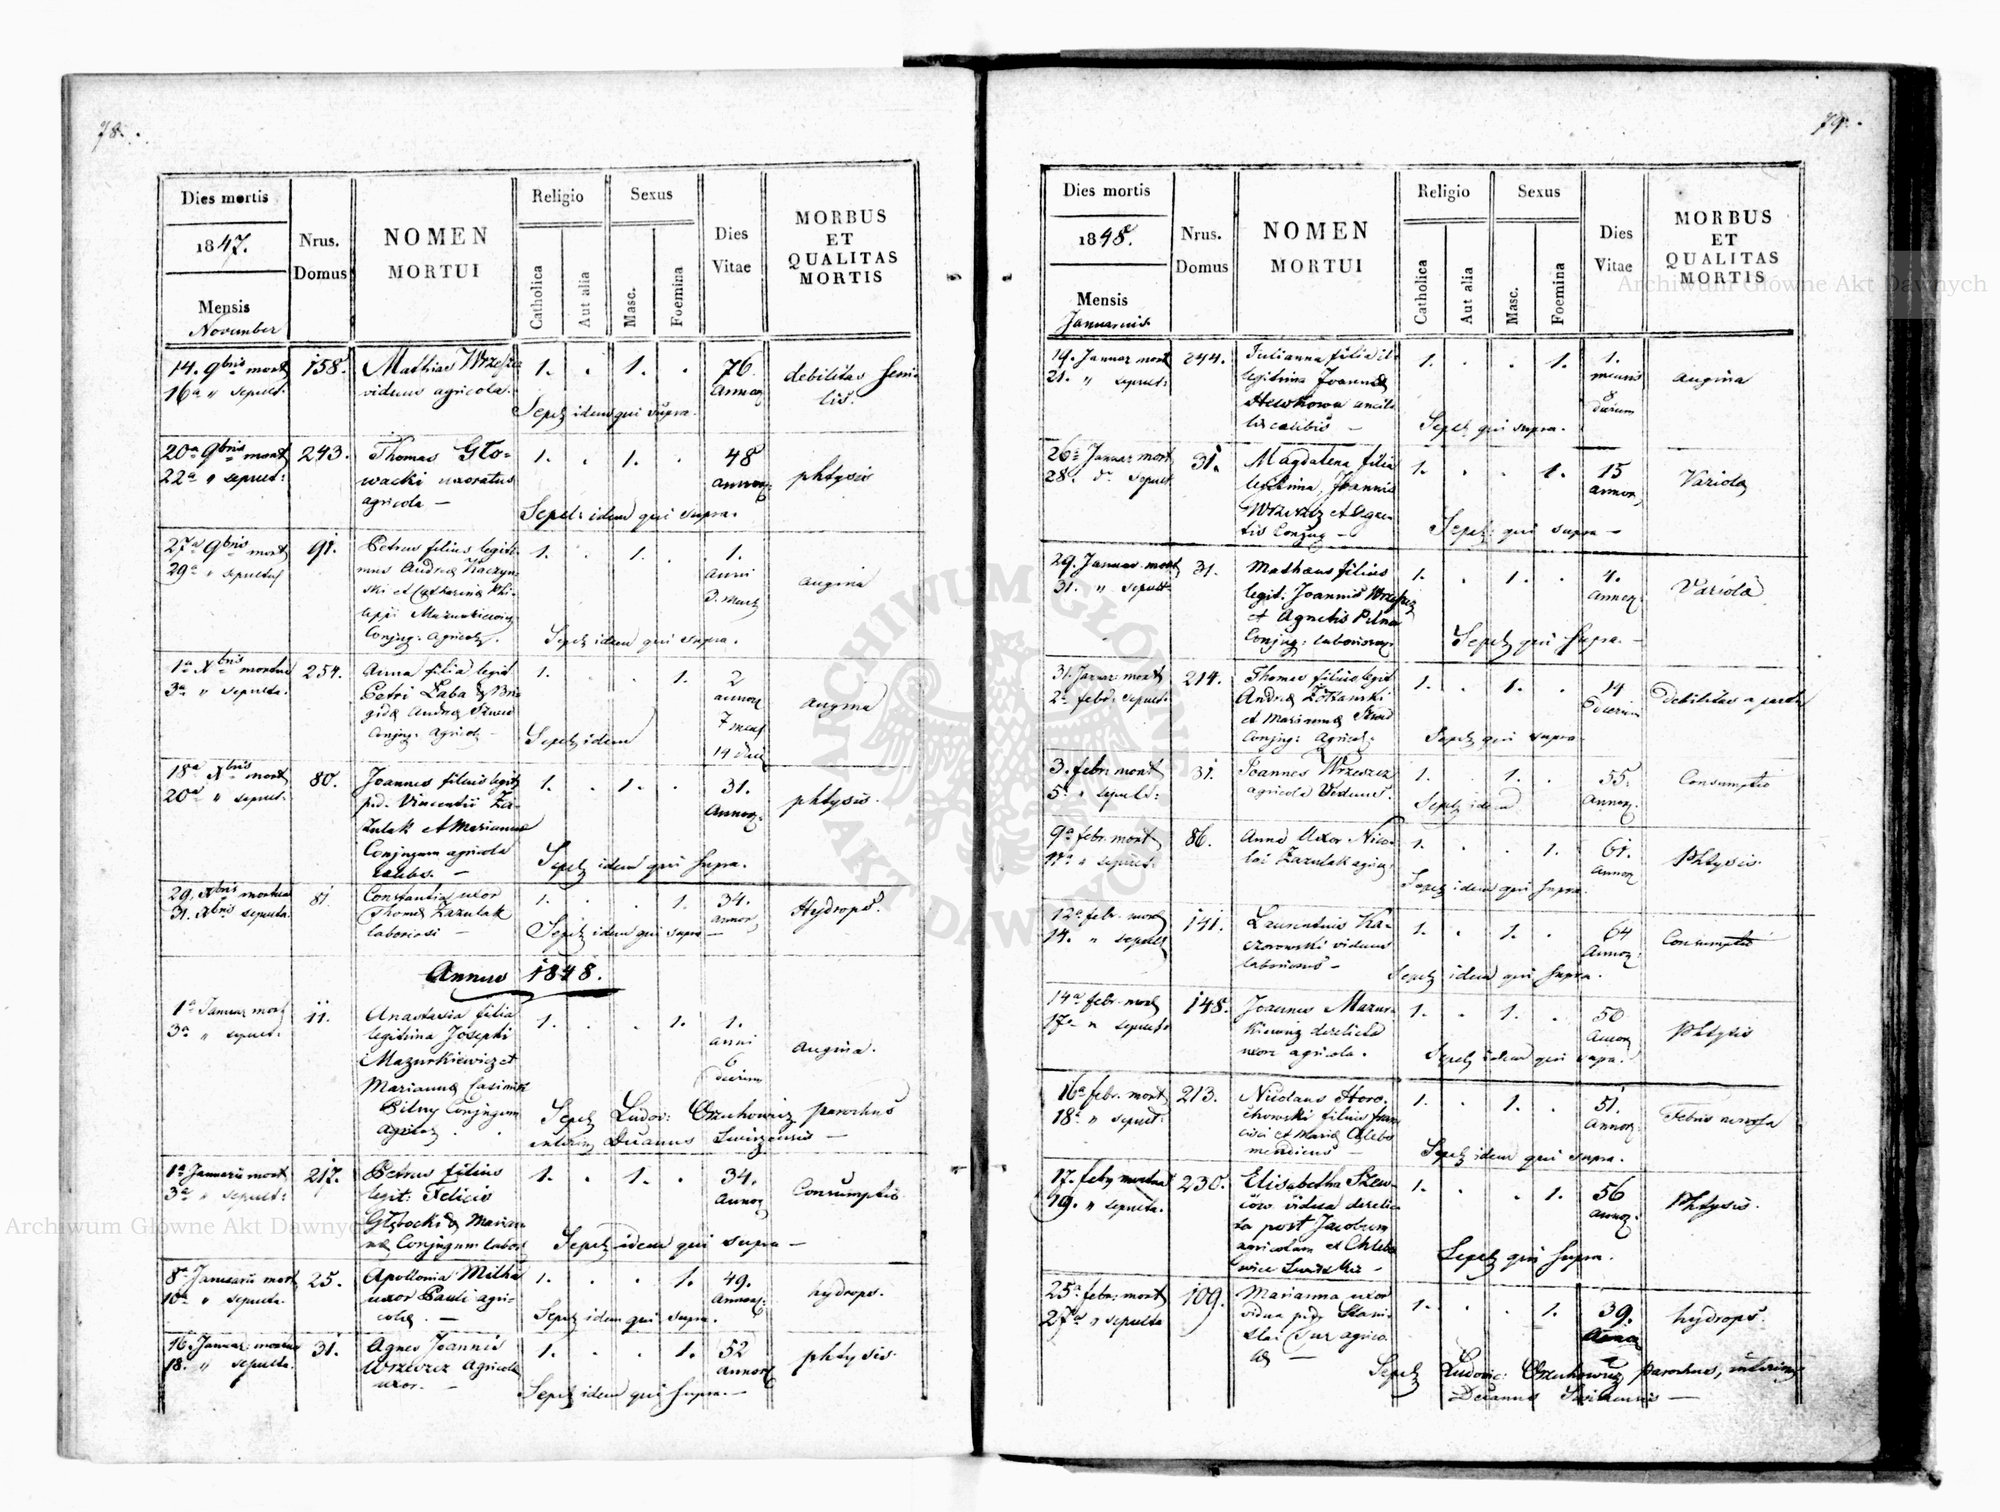 78.
Dies mortis
1847.
Mensis
November
Nrus.
Domus
NOMEN
MORTUI
Religio
Catholica
Aut alia
Sexus
Masc.
Foemina
Dies
Vitae
MORBUS
ET
QUALITAS
MORTIS
14. 9bris mort
16a " sepult.
158.
Mathias Wrzeszcz
viduus agricola.
1. . 1. .
76.
Annor
debilitas seni-
lis.
Sepel idem qui supra.
20a 9bris mort
22a " sepult:
243.
Thomas Gło-
wacki uxoratus
agricola —
1. . 1. .
48
annor:
phtysis
Sepel: idem qui supra.
27a 9bris mort
29a " sepultus
91.
Petrus filius legiti-
mus Andreæ Kaczyn-
ski et Catharina Phi-
lippi Mazurkiewicz
Conjug: Agricol.
1. . 1. .
1.
anni
3. mens
angina
Sepel idem qui supra.
1a Xbris mortua
3a " sepulta.
254.
Anna filia legit
Petri Łaba & Bri
gidæ Andreæ
Conjug: Agricol —
1. . . 1.
2
annor
7 mens
14 dies
angina
Sepel idem
18a Xbris mort
20a " sepult:
80.
Joannes filius legit
pd. Vincentii Za-
zulak et Marianna
Conjugum agricola
caelebs. —
1. . 1. .
31.
Annor:
phtysis.
Sepel idem qui supra.
29. Xbris mortua
31. Xbris sepulta.
81
Constantia uxor
Thomæ Zazulak
laboriosi —
1. . . 1.
34.
annor
Hydrops.
Sepel idem qui supra —
Annus 1848.
1a Januar mort
3a " sepult.
11.
Anastasia filia
legitima Josephi
Mazurkiewicz et
Mariannæ Casimiri
Pilny Conjugum
Agricol
1. . . 1.
1.
anni
6
dierum
angina.
Sepel Ludov: Orzechowicz parochus
interim Decanus Swirzensis —
1a Januarii mort
3a " sepult:
217.
Petrus filius
legit: Felicis
Głębocki & Marian-
næ Conjugum labor
1. . 1. .
34.
Annor
Consumptio
Sepel idem qui supra —
8a Januarii mort
10a " sepulta.
25.
Apollonia Malha
uxor Pauli agri-
colæ. —
1. . . 1.
49.
Annor:
hydrops.
Sepel idem qui supra.
16. Januar: mortua
18. " sepulta.
31.
Agnes Joannis
Wrzeszcz Agricola
uxor. —
1. . . 1.
52
Annor
phtysis
Sepel idem qui supra. —
79.
Dies mortis
1848.
Mensis
Januarius
Nrus.
Domus
NOMEN
MORTUI
Religio
Catholica
Aut alia
Sexus
Masc.
Foemina
Dies
Vitae
MORBUS
ET
QUALITAS
MORTIS
19. Januar mort
21. " sepult:
244.
Julianna filia il-
legitima Joannæ
ancil-
læ caelibis —
1. . . 1.
1.
mensis
8
dierum
angina
Sepel qui supra.
26a Januar mort
28. do sepult
31.
Magdalena filia
legitima Joannis
Wrzeszcz et Agne-
tis Conjug —
1. . . 1.
15
annor
Variola
Sepel: qui supra —
29. Januar mort
31. " sepult
31.
Mathæus filius
legit: Joannis Wrzeszcz
et Agnetis Pilna
Conjug: laborios
1. . 1. .
4.
annor:
Variola
Sepel qui supra. —
31. Januar: mort
2a febr: sepult:
214.
Thomas filius legit
Andreæ
et Mariannæ
Conjug: Agricol:
1. . 1. .
14
dierum
debilitas a partu
Sepel qui supra
3. febr: mort
5. " sepult:
31.
Joannes Wrzeszcz
agricola Viduus.
1. . 1. .
55.
Annor:
Consumptio
Sepel idem
9a febr. mort
11a " sepult:
86.
Anna Uxor Nico-
lai Zazulak agric:
1. . . 1.
61.
Annor
Phtysis.
Sepel idem qui supra.
12a febr. mort
14. " sepult
141.
Laurentius Ka-
czorowski viduus
laboriosus —
1. . 1. .
64
Annor:
Consumptio
Sepel idem qui supra.
14a febr. mort
17a " sepult
148.
Joannes Mazur-
kiewicz derelicta
uxore agricola.
1. . 1. .
50
Annor
Phtysis
Sepel idem qui supra.
16a febr. mort
18. " sepult:
213.
Nicolaus Horo-
chowski filius fran-
cisci et Mariæ
mendicus —
1. . 1. .
51.
Annor:
Febris nervosa
Sepel idem qui supra.
17. febr mortua
19. " sepulta.
230.
Elisabetha Szew-
ców vidua derelic-
ta post Jacobum
agricolam et Chlebo
wice
1. . . 1.
56
annor:
Phtysis.
Sepel qui supra.
25a febr: mort
27a " sepulta
109.
Marianna uxor
vidua pd. Stani-
slai Sur agrico-
læ —
1. . . 1.
39.
hydrops.
Sepel Ludovic: Orzechowicz parochus, interim
Decanus Swirzensis —
Archiwum Główne Akt Dawnych
Archiwum Główne Akt Dawnych
ARCHIWUM GŁÓWNE
AKT DAWNYCH